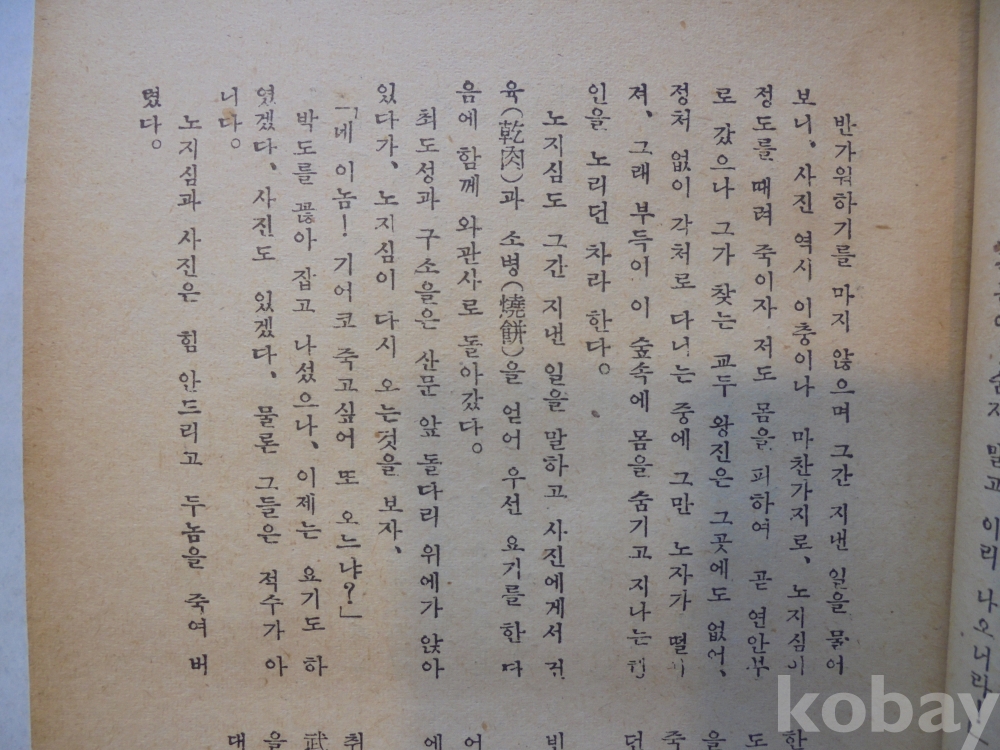 반가워하기를 마지 않으며 그간 지낸 일을 물어
보니、사진 역시 이충이나 마찬가지로、노지심이
정도를 때려 죽이자 저도 몸을 피하여 곧 연안부
로 갔으나 그가 찾는 교두 왕진은 그곳에도 없어、
정처 없이 각처로 다니는 중에 그만 노자가 떨어
져、그래 부득이 이 숲속에 몸을 숨기고 지나는 행
인을 노리던 차라 한다。
노지심도 그간 지낸 일을 말하고 사진에게서 건
육(乾肉)과 소병(燒餠)을 얻어 우선 요기를 한 다
음에 함께 와관사로 돌아갔다。
최도성과 구소을은 산문 앞 돌다리 위에가 앉아
있다가、노지심이 다시 오는것을 보자、
「네 이놈! 기어코 죽고싶어 또 오느냐?」
박도를 꼲아 잡고 나섰으나、이제는 요기도 하
였겠다、사진도 있겠다、물론 그들은 적수가 아
니다。
노지심과 사진은 힘 안드리고 두놈을 죽여 버
렸다。
말고 이리 나오너라!
kobay